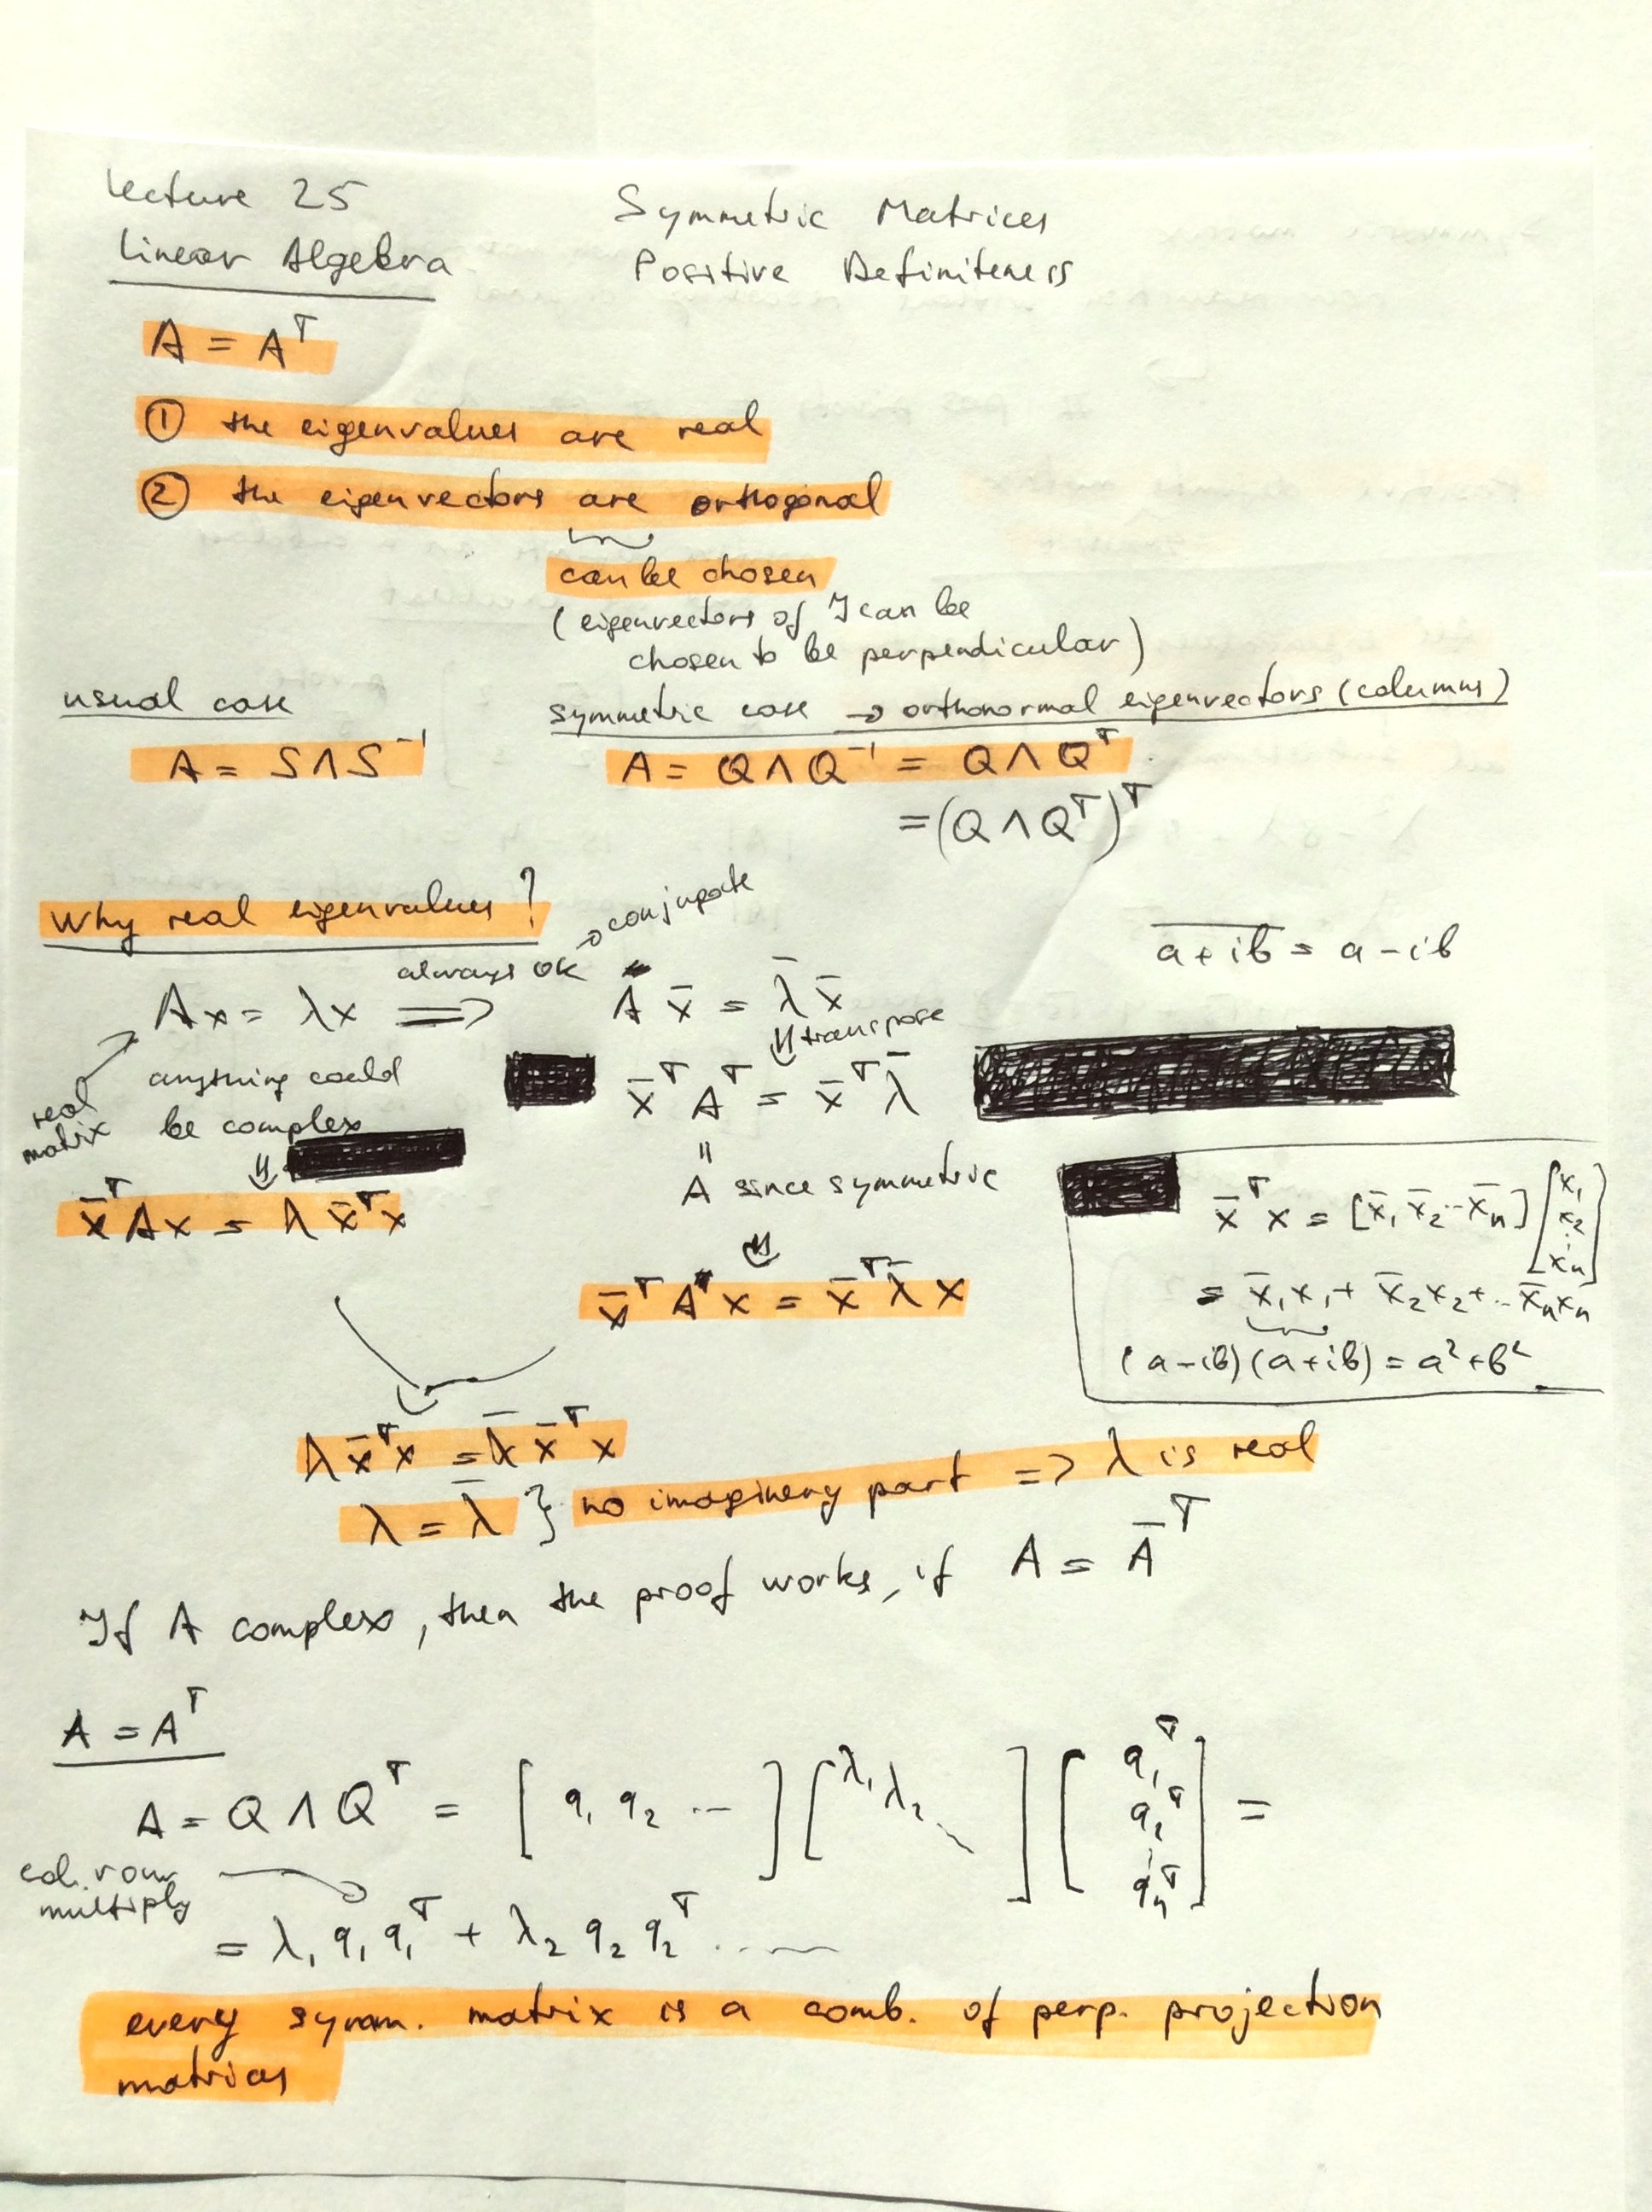 Lecture 25
Linear Algebra
Symmetric Matrices
Positive Definiteness
A = Aᵀ
① the eigenvalues are real
② the eigenvectors are orthogonal
can be chosen
(eigenvectors of I can be
chosen to be perpendicular)
usual case
A = SΛS⁻¹
symmetric case → orthonormal eigenvectors (columns)
A = QΛQ⁻¹ = QΛQᵀ
= (QΛQᵀ)ᵀ
Why real eigenvalues?
always ok → conjugate
Ax = λx ⟹ A x̄ = λ̄ x̄
a+ib̅ = a - ib
real matrix
anything could
be complex
⇓ transpose
x̄ᵀAᵀ = x̄ᵀλ̄
"
A since symmetric
x̄ᵀAx = λ x̄ᵀx
x̄ᵀ A x = x̄ᵀ λ̄ x
x̄ᵀx = [x̄₁ x̄₂ ... x̄ₙ] [x₁ x₂ ⋮ xₙ]
= x̄₁x₁ + x̄₂x₂ + ... x̄ₙxₙ
(a-ib)(a+ib) = a²+b²
λ x̄ᵀx = λ̄ x̄ᵀx
λ = λ̄ } no imaginery part => λ is real
If A complex, then the proof works, if A = Āᵀ
A = Aᵀ
A = QΛQᵀ = [q₁ q₂ ...] [λ₁ λ₂ ⋱] [q₁ᵀ q₂ᵀ ⋮ qₙᵀ] =
col. row
multiply
= λ₁q₁q₁ᵀ + λ₂q₂q₂ᵀ ......
every symm. matrix is a comb. of perp. projection
matrices